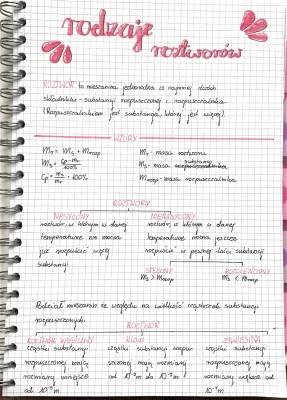 rodzaje
roztworów
ROZTWÓR to mieszanina jednorodna co najmniej dwóch
składników - substancji rozpuszczonej i rozpuszczalnika
(Rozpuszczalnikiem jest substancja, której jest więcej).
WZORY
mr = ms + mrozp
mr - masa roztworu
ms = cp · mr / 100%
ms - masa substancji
cp = ms / mr · 100%
mrozp - masa rozpuszczalnika
ROZTWORY
NASYCONY
NIENASYCONY
roztwór, w którym w danej
temperaturze nie można
już rozpuścić więcej
substancji
roztwór, w którym w danej
temperaturze można jeszcze
rozpuścić pewną ilość substancji
STĘŻONY
ROZCIEŃCZONY
ms > mrozp
ms < mrozp
Podział mieszanin ze względu na wielkość cząsteczek substancji
rozpuszczonych.
ROZTWÓR
ROZTWÓR WŁAŚCIWY
KOLOID
ZAWIESINA
cząstki substancji
rozpuszczonej mają
rozmiary mniejsze
od 10⁻⁹ m
cząstki substancji rozpu-
szczonej mają rozmiary
od 10⁻⁹ m do 10⁻⁷ m
cząstki substancji
rozpuszczonej mają
rozmiary większe od
10⁻⁷ m